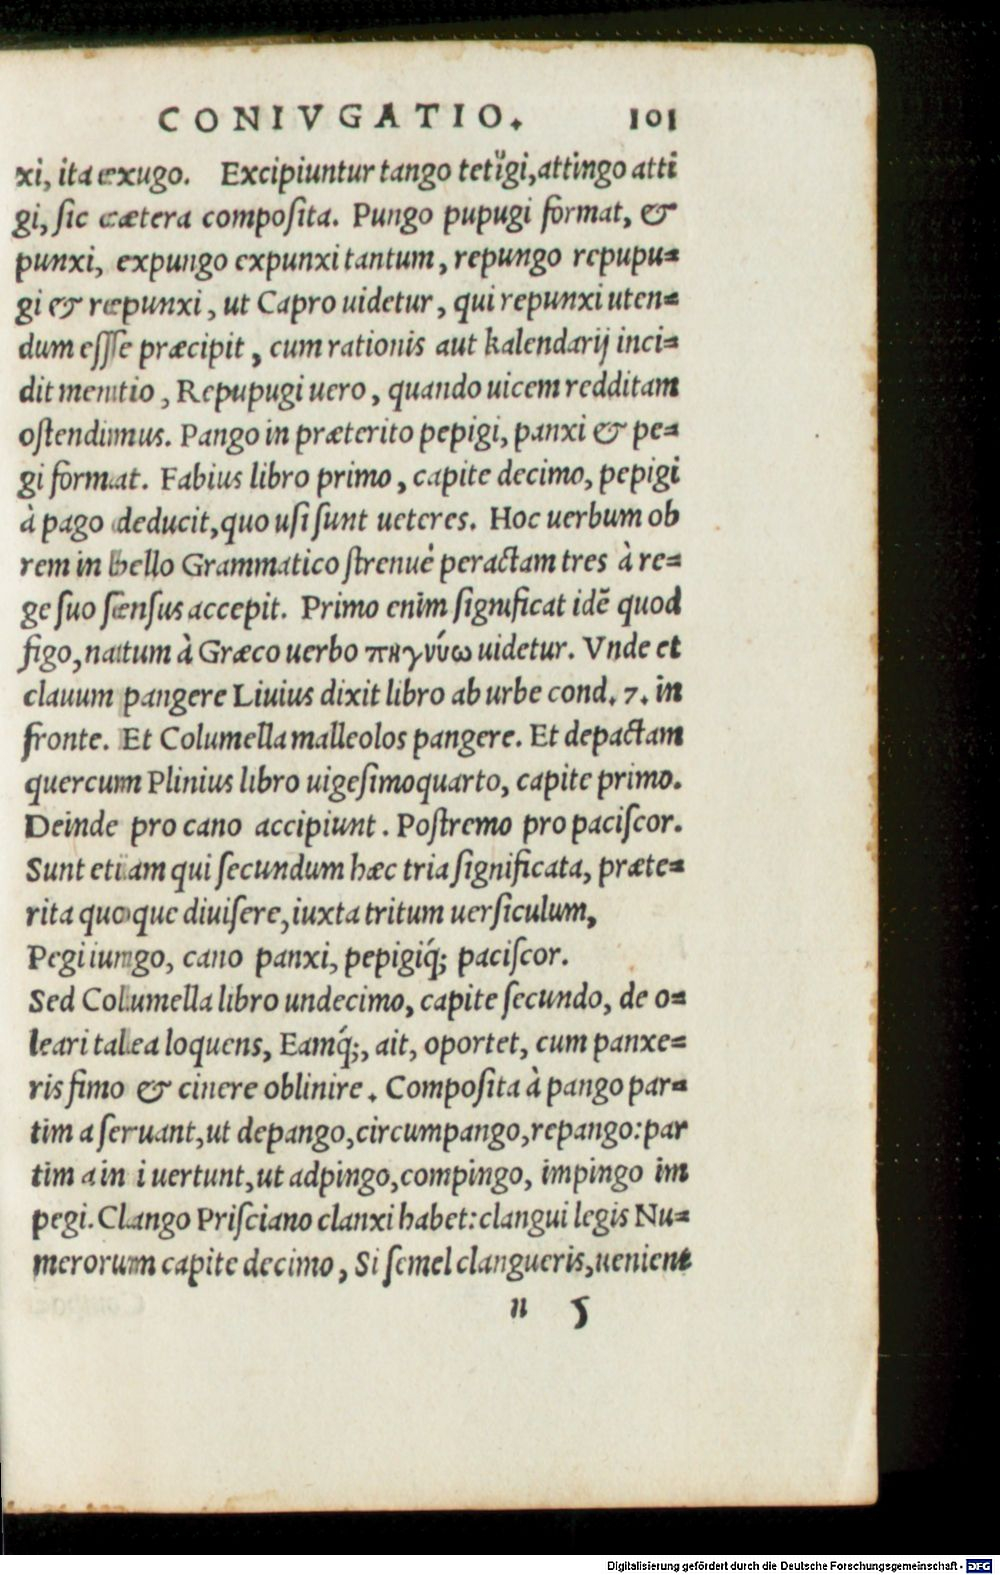 CONIVGATIO. 101
xi, ita exugo. Excipiuntur tango tetigi, attingo atti
gi, sic cætera composita. Pungo pupugi format, &
punxi, expungo expunxi tantum, repungo repupu=
gi & repunxi, ut Capro uidetur, qui repunxi uten=
dum esse præcipit, cum rationis aut kalendarij inci=
dit mentio, Repupugi uero, quando uicem redditam
ostendimus. Pango in præterito pepigi, panxi & pe=
gi format. Fabius libro primo, capite decimo, pepigi
à pago deducit, quo usi sunt ueteres. Hoc uerbum ob
rem in bello Grammatico strenuè peractam tres à re=
ge suo sensus accepit. Primo enim significat idē quod
figo, natum à Græco uerbo πηγνύω uidetur. Vnde et
clauum pangere Liuius dixit libro ab urbe cond. 7. in
fronte. Et Columella malleolos pangere. Et depactam
quercum Plinius libro uigesimoquarto, capite primo.
Deinde pro cano accipiunt. Postremo pro paciscor.
Sunt etiam qui secundum hæc tria significata, præte=
rita quoque diuisere, iuxta tritum uersiculum,
Pegi iungo, cano panxi, pepigiq́; paciscor.
Sed Columella libro undecimo, capite secundo, de o=
leari talea loquens, Eamq́;, ait, oportet, cum panxe=
ris fimo & cinere oblinire. Composita à pango par=
tim a seruant, ut depango, circumpango, repango: par
tim a in i uertunt, ut adpingo, compingo, impingo im
pegi. Clango Prisciano clanxi habet: clangui legis Nu=
merorum capite decimo, Si semel clangueris, uenient
n 5
Digitalisierung gefördert durch die Deutsche Forschungsgemeinschaft - DFG